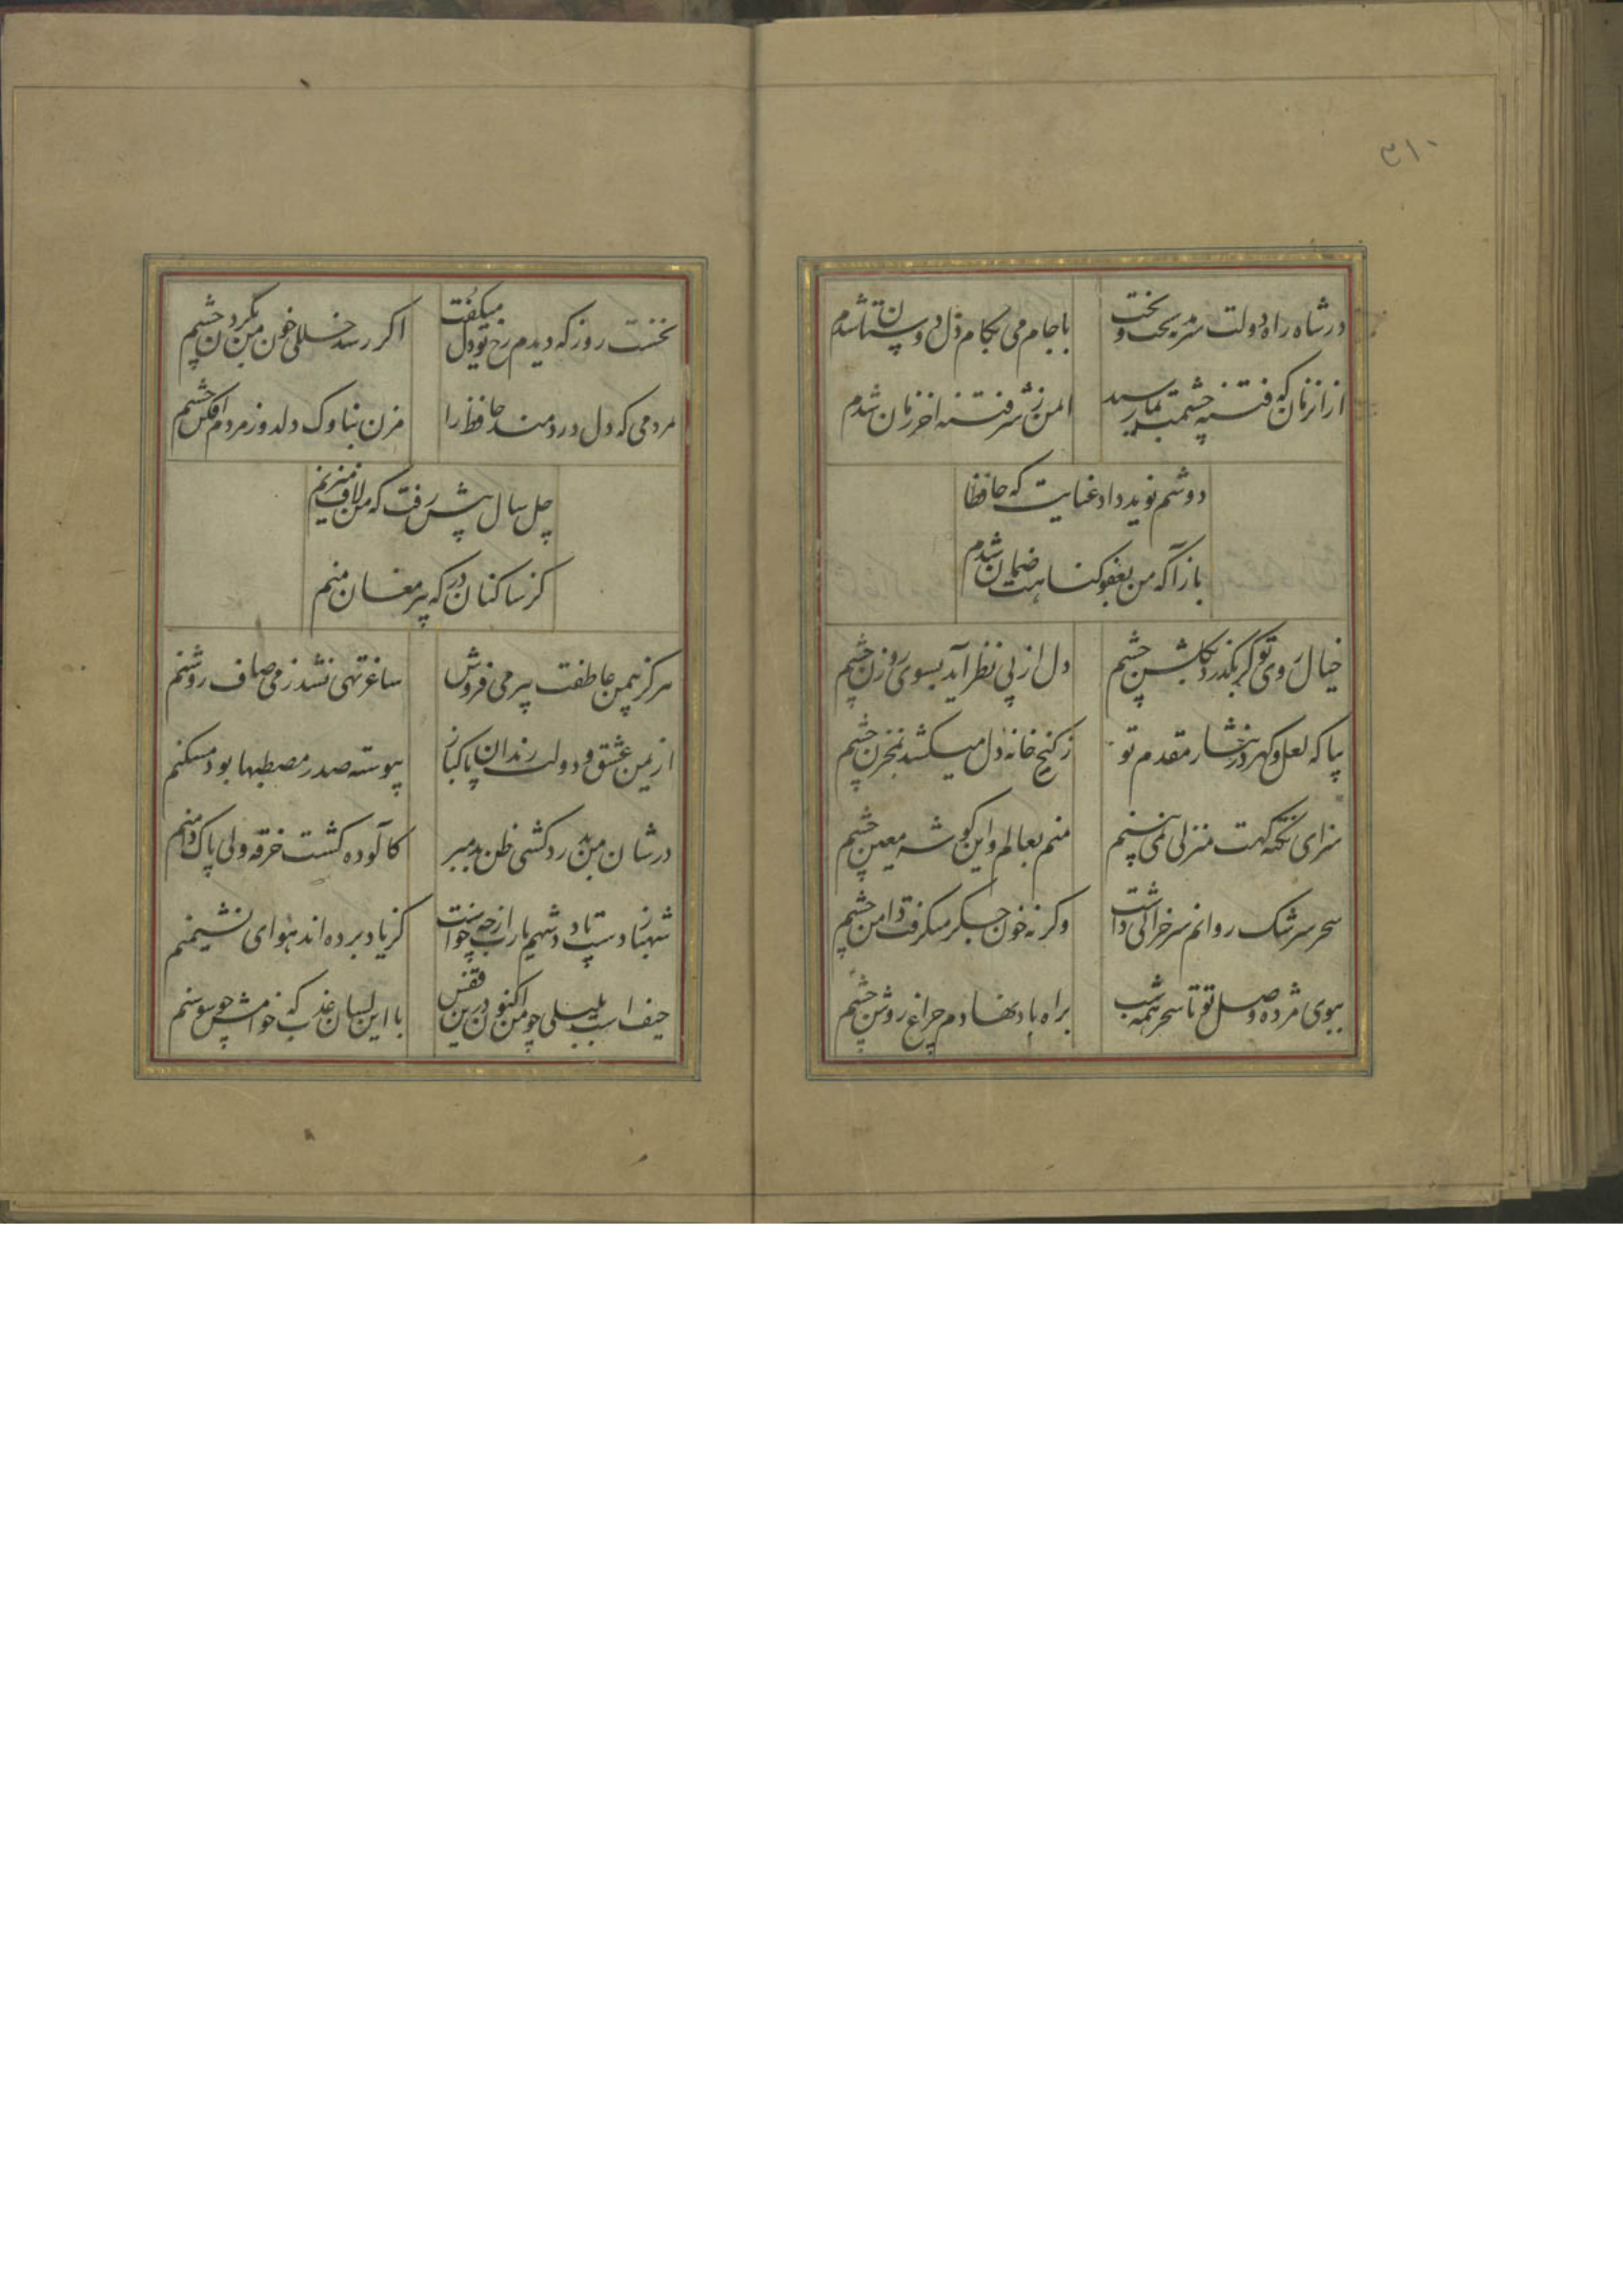 ۳۱۰
در شاه راه دولت سرمد بتخت و بخت
با جام می بکام دل دوستان شدم
از آن زمان که فتنه چشمت بمن رسید
ایمن ز شر فتنه اخر زمان شدم
دوشم نوید داد عنایت که حافظا
باز آ که من بعفو کناهت ضمان شدم
خیال روی تو کر بکذرد بکلشن چشم
دل از پی نظر آید بسوی روزن چشم
بیا که لعل و کهر در نثار مقدم تو
ز کنج خانه دل میکشد بمخزن چشم
سزای تکیه کهت منزلی نمی بینم
منم بعالم و این کوشه معین چشم
سحر سرشک روانم سر خرابی داشت
وکرنه خون جکر میکرفت دامن چشم
ببوی مژده وصل تو تا سحر همه شب
براه باد نهادم چراغ روشن چشم
نخست روز که دیدم رخ تو دل میکفت
اکر رسد خللی خون من بکردن چشم
مردمی که دل دردمند حافظ را
مزن بناوک دلدوز مردم افکن چشم
چل سال پیش رفت که من لاف میزنم
کز ساکنان درکه پیر مغان منم
هرکز بیمن عاطفت پیر می فروش
ساغر تهی نشد ز می صاف روشنم
از یمن عشق و دولت رندان پاکباز
پیوسته صدر مصطبها بود مسکنم
در شان من بدردکشی ظن بد مبر
کآلوده کشت خرقه ولی پاک دامنم
شهباز دست پادشهم یا رب از چه خواست
کز یاد برده اند هوای نشیمنم
حیف است بلبلی چو من اکنون درین قفس
با این لسان عذب که خامش چو سوسنم